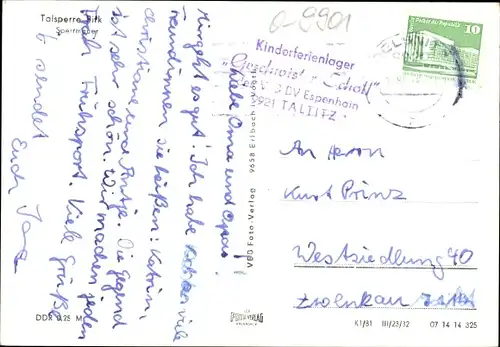 Talsperre Pirk
Sperrmauer
Liebe Oma und Opa!
Mir geht es gut! Ich habe schon viele
Freundinnen sie heißen: Katrin,
Christiane und Antje. Die Gegend
ist sehr schön. Wir machen jeden
Tag Frühsport. Viele Grüße
sendet
Euch
DDR 0,25 M
VEB Foto-Verlag 9658 Erlbach
0-9901
Kinderferienlager
"Geschwister Scholl"
BV Espenhain
9921 TALTITZ
10
An Herrn
Kurt Prinz
Westsiedlung 40
Zwenkau
K1/81 III/23/32 07 14 14 325